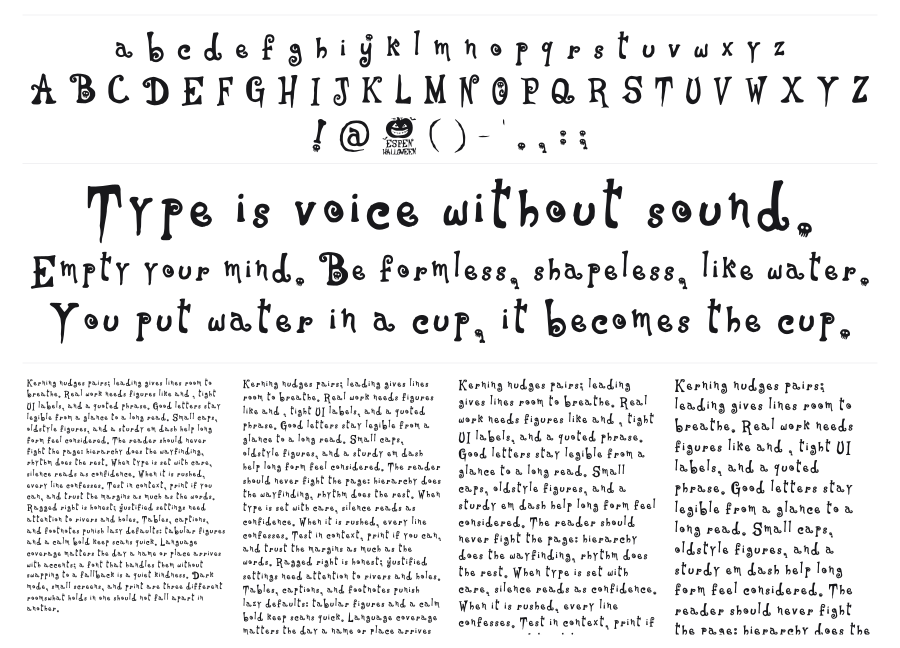 a b c d e f g h i j k l m n o p q r s t u v w x y z
A B C D E F G H I J K L M N O P Q R S T U V W X Y Z
! @ ESPEN HALLOWEEN ( ) - ' . , : ;
Type is voice without sound.
Empty your mind. Be formless, shapeless, like water.
You put water in a cup, it becomes the cup.
Kerning nudges pairs; leading gives lines room to
breathe. Real work needs figures like and , tight
UI labels, and a quoted phrase. Good letters stay
legible from a glance to a long read. Small caps,
oldstyle figures, and a sturdy em dash help long
form feel considered. The reader should never
fight the page: hierarchy does the wayfinding,
rhythm does the rest. When type is set with care,
silence reads as confidence. When it is rushed,
every line confesses. Test in context, print if you
can, and trust the margins as much as the words.
Ragged right is honest; justified settings need
attention to rivers and holes. Tables, captions,
and footnotes punish lazy defaults: tabular figures
and a calm bold keep scans quick. Language
coverage matters the day a name or place arrives
with accents; a font that handles them without
swapping to a fallback is a quiet kindness. Dark
mode, small screens, and print are three different
roomswhat holds in one should not fall apart in
another.
Kerning nudges pairs; leading gives lines
room to breathe. Real work needs figures
like and , tight UI labels, and a quoted
phrase. Good letters stay legible from a
glance to a long read. Small caps,
oldstyle figures, and a sturdy em dash
help long form feel considered. The reader
should never fight the page: hierarchy does
the wayfinding, rhythm does the rest. When
type is set with care, silence reads as
confidence. When it is rushed, every line
confesses. Test in context, print if you can,
and trust the margins as much as the
words. Ragged right is honest; justified
settings need attention to rivers and holes.
Tables, captions, and footnotes punish
lazy defaults: tabular figures and a calm
bold keep scans quick. Language coverage
matters the day a name or place arrives
Kerning nudges pairs; leading
gives lines room to breathe. Real
work needs figures like and , tight
UI labels, and a quoted phrase.
Good letters stay legible from a
glance to a long read. Small
caps, oldstyle figures, and a
sturdy em dash help long form feel
considered. The reader should
never fight the page: hierarchy
does the wayfinding, rhythm does
the rest. When type is set with
care, silence reads as confidence.
When it is rushed, every line
confesses. Test in context, print if
Kerning nudges pairs;
leading gives lines room to
breathe. Real work needs
figures like and , tight UI
labels, and a quoted
phrase. Good letters stay
legible from a glance to a
long read. Small caps,
oldstyle figures, and a
sturdy em dash help long
form feel considered. The
reader should never fight
the page: hierarchy does the